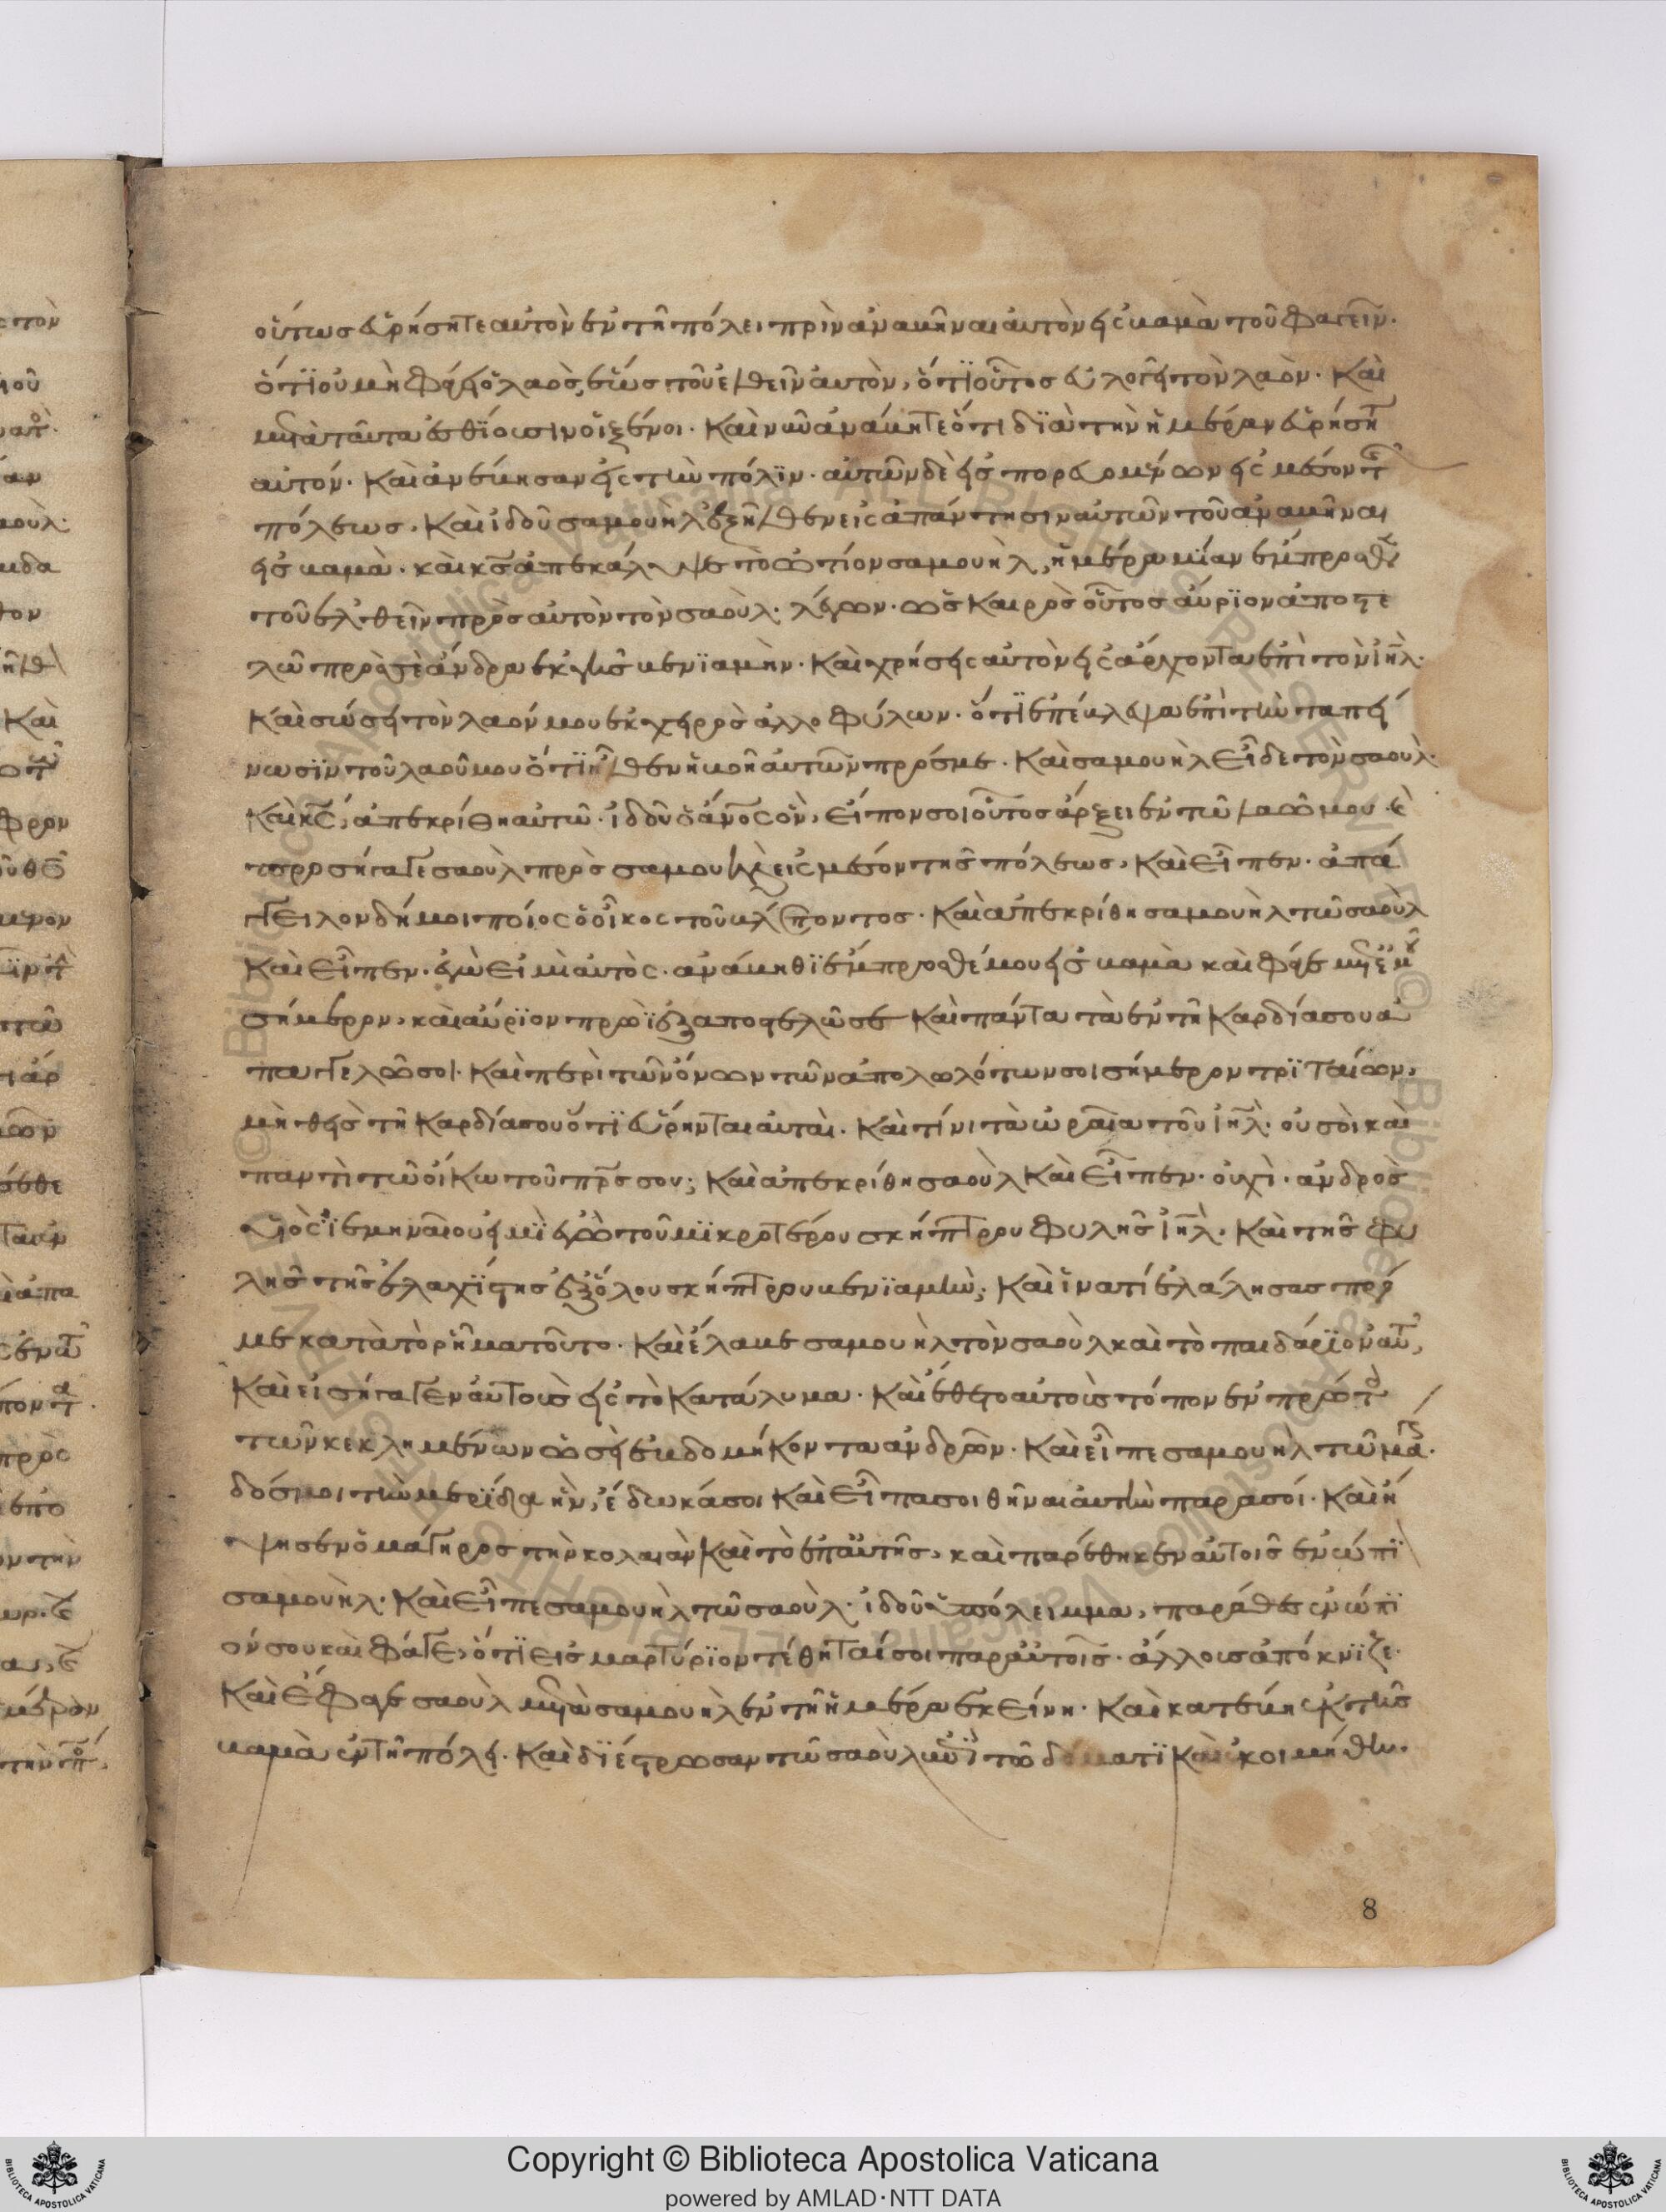 οὕτως εὑρήσητε αὐτὸν ἐν τῆ πόλει πρὶν ἀναβῆναι αὐτὸν εἰς βαμὰ τοῦ φαγεῖν.
ὅτϊ οὐ μὴ φάγη ὁ λαὸς, ἕως τοῦ ἐλθεῖν αὐτὸν, ὅτϊ οὗτος εὐλογεῖ τὸν λαὸν. Καὶ
μετὰ ταῦτα ἐσθΐουσιν οἱ ξένοι. Καὶ νῦν ἀνάβητε ὅτι διὰ τὴν ἡμέραν εὑρήσητ
αὐτόν. Καὶ ἀνέβησαν εἰς τὴν πόλϊν. αὐτῶν δὲ εἰσπορευομένων εἰς μέσον τ
πόλεως. Καὶ ἰδοὺ σαμουὴλ ἐξῆλθεν εἰς ἀπάντησιν αὐτῶν τοῦ ἀναβῆναι
εἰς βαμὰ. καὶ κς ἀπεκάλυψε τὸ ὠτίον σαμουὴλ, ἡμέρα μίαν ἔμπροσθ
τοῦ ἐλθεῖν πρὸς αὐτὸν τὸν σαοὺλ. λέγων. ὡς Καιρὸς οὗτος αὔρϊον ἀποστε
λῶ πρὸς σὲ ἄνδρα ἐκ γῆς βενϊαμὴν. Καὶ χρήσεις αὐτὸν εἰς ἄρχοντα ἐπὶ τὸν ἰηλ.
Καὶ σώσει τὸν λαόν μου ἐκ χειρὸς ἀλλοφύλων. ὅτϊ ἐπέβλεψα ἐπὶ τὴν ταπεί
νωσϊν τοῦ λαοῦ μου ὅτϊ ἦλθεν ἡ βοὴ αὐτῶν πρός με. Καὶ σαμουὴλ εἶδε τὸν σαοὺλ.
Καὶ κς, ἀπεκρίθη αὐτῶ. ἰδοὺ ὁ ἄνος ὃν, εἶπον σοι οὗτος ἄρξει ἐν τῶ λαῶ μου. Καὶ
προσήγαγε σαοὺλ πρὸς σαμουὴλ εἰς μέσον τῆς πόλεως, Καὶ εἶπεν. ἀπά
γγειλον δή μοι ποίος ὁ οἶκος τοῦ βλέποντος. Καὶ ἀπεκρίθη σαμουὴλ τῶ σαοὺλ
Καὶ εἶπεν. ἐγὼ εἰμὶ αὐτὸς. ἀνάβηθϊ ἔμπροσθέ μου εἰς βαμὰ καὶ φάγε μετ ἐμ
σήμερον, καὶ αὔρϊον πρωῒ ἐξαποστελῶ σε Καὶ πάντα τὰ ἐν τῆ Καρδία σου ἀ
παγγελῶ σοι. Καὶ περὶ τῶν ὄνων τῶν ἀπολωλότων σοι σήμερον τρϊταίων,
μὴ θῆς τῆ Καρδία σου ὅτϊ εὕρηνται αὐταὶ. Καὶ τίνι τὰ ὡραῖα τοῦ ἰηλ. οὐ σοὶ καὶ
παντὶ τῶ οἴκω τοῦ πρς σου; Καὶ ἀπεκρίθη σαοὺλ Καὶ εἶπεν. οὐχὶ. ἀνδρὸς
υἱὸς ϊεμηναίου εἰμὶ ἐγὼ τοῦ μϊκροτέρου σκήπτρου φυλῆς ἰηλ. Καὶ τῆς φυ
λῆς τῆς ἐλαχΐστης ἐξ ὅλου σκήπτρου βενϊαμὶν; Καὶ ἵνα τί ἐλάλησας πρὸς
με κατὰ τὸ ρῆμα τοῦτο. Καὶ ἔλαβε σαμουὴλ τὸν σαοὺλ καὶ τὸ παιδάρϊον αὐτ,
Καὶ εἰσήγαγεν αὐτοὺς εἰς τὸ Κατάλυμα. Καὶ ἔθετο αὐτοῖς τόπον ἐν πρώτο
τῶν κεκλημένων ὡσεὶ ἑβδομήκοντα ἀνδρῶν. Καὶ εἶπε σαμουὴλ τῶ μαγ.
δός μοι τὴν μερΐδα ἣν, ἔδωκά σοι Καὶ εἶπα σοι θῆναι αὐτὴν παρὰ σοί. Καὶ ἥ
ψησεν ὁ μάγειρος τὴν κολαιὰν Καὶ τὸ ἐπ αὐτῆς, καὶ παρέθηκεν αὐτοῖς ἐνώπϊ
σαμουὴλ. Καὶ εἶπε σαμουὴλ τῶ σαοὺλ. ἰδοὺ ὑπόλειμμα, παράθες ἐνώπϊ
όν σου καὶ φάγε, ὅτϊ εἰς μαρτύρϊον τέθηταί σοι παρ αὐτοῖς. ἄλλοις ἀπόκνϊζε.
Καὶ ἔφαγε σαοὺλ μετὰ σαμουὴλ ἐν τῆ ἡμέρα ἐκείνη. Καὶ κατέβη ἐκ τῆς
βαμὰ ἐν τῆ πόλει. Καὶ δϊέστρωσαν τῶ σαοὺλ ἐπὶ τῶ δώματϊ Καὶ ἐκοιμήθη.
8
Copyright © Biblioteca Apostolica Vaticana
powered by AMLAD·NTT DATA